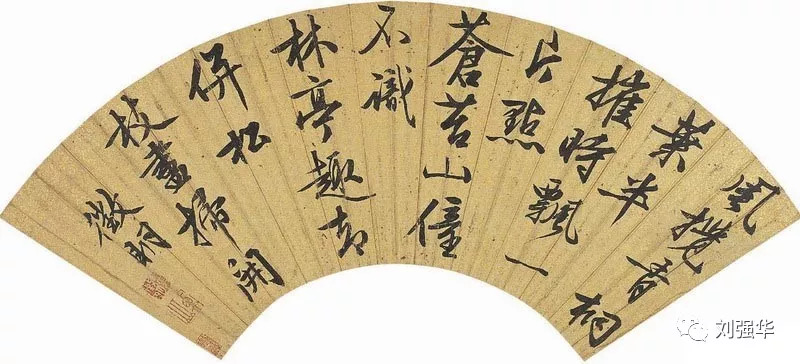 風攪青桐
葉半
摧時飄一
片點
蒼苔山僮
不識
林亭趣却
併松
枝盡掃開
徵明
刘强华